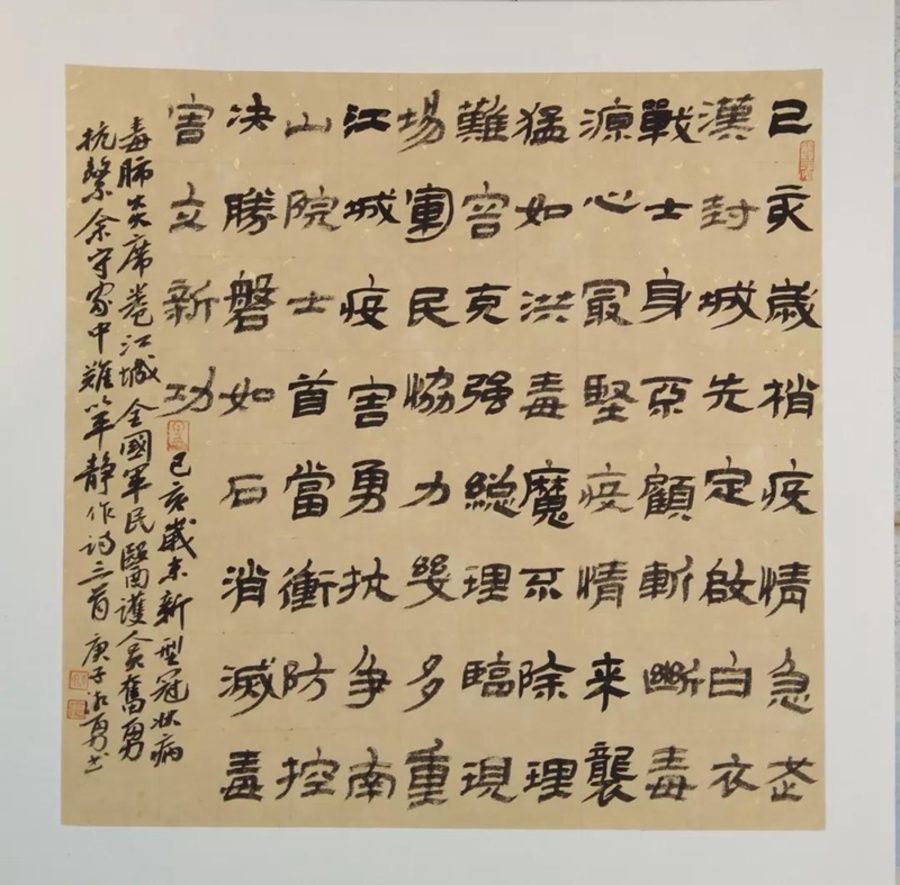 己亥歲梢疫情急武
漢封城先定啟白衣
戰士身顧斬斷毒
源心最堅疫情來襲
猛如洪毒魔不除理
難容克强總理臨現
場軍民協力幾多重
江城疫害勇抗争南
山院士首當衝防控
决勝磐如石消滅毒
害立新功
己亥歲末新型冠狀病
毒肺炎席卷江城全國軍民醫護人員奮勇
抗擊余守家中難以平静作詩三首庚子勇書